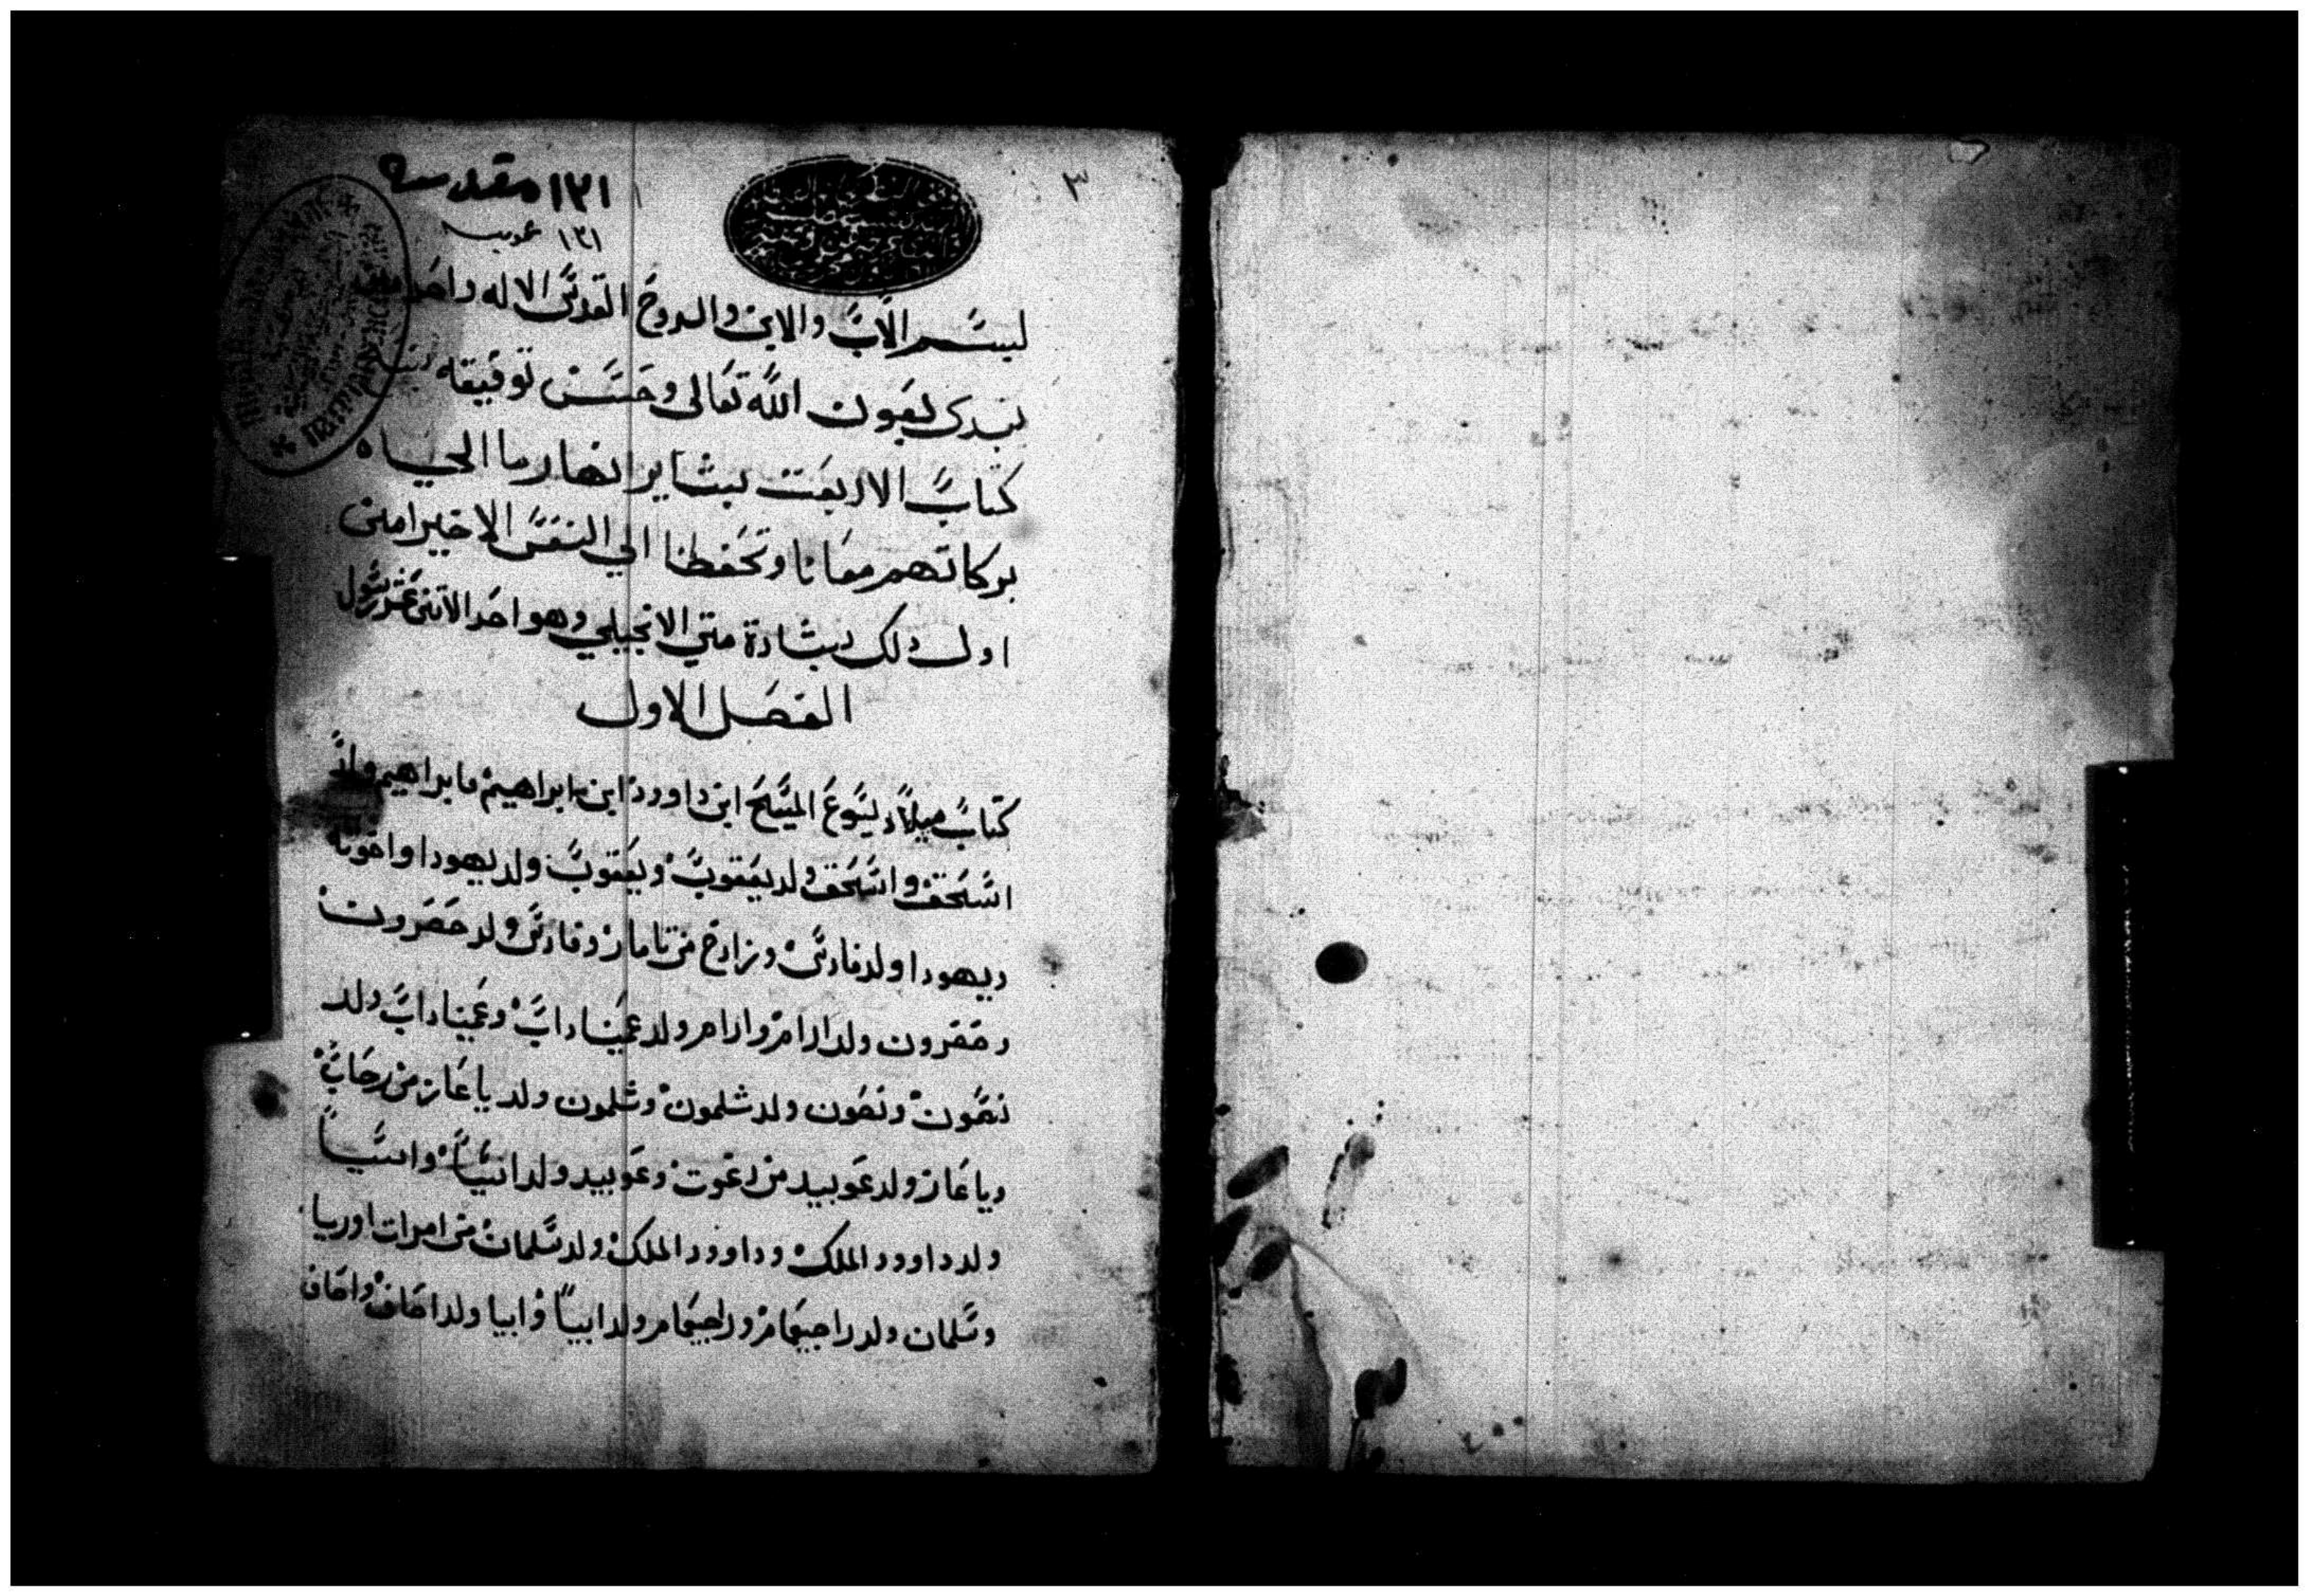 ٣
١٣١ مقدسه
١٣١
لبسم الاب والابن والروح القدس الاله واحد
نبتدى بعون الله تعالى وحسن توفيقه
كتاب الاربعت بشاير انهار ما الحياه
بركاتهم معانا وتحفظنا الي النفس الاخير امين
اول ذلك بشارة متي الانجيلي وهو احد الاتنى عشر رسول
الفصل الاول
كتاب ميلاد يسوع المسيح ابن داوود ابن ابراهيم فابراهيم ولد
اسحق واسحق ولد يعقوب ويعقوب ولد يهودا واخوتا
ويهودا ولد فارس وزارح من تامار وفارس ولد حصرون
وحصرون ولد ارام وارام ولد عميناداب وعميناداب ولد
نصون ونصون ولد شلمون وشلمون ولد ياعاز من رحاب
وياعاز ولد عوبيد من رعوت وعوبيد ولد اسيا واسيا
ولد داوود الملك وداوود الملك ولد سلمان من امرات اوريا
وسلمان ولد راحبعام وراحبعام ولد ابيا وابيا ولد اصاف واصاف